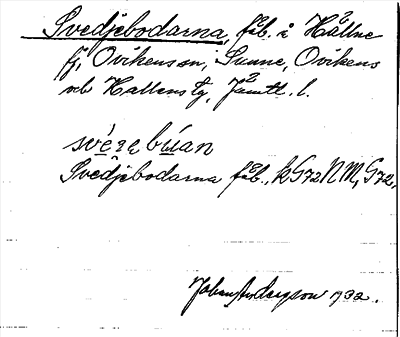 Svedjebodarna, fäb. å Hållne
fj, Ovikens sn, Sunne, Ovikens
och Hallens tg, Jämtl. l.
svèrę búan
Svedjebodarna fäb., k G72 NM, G72,
Johan Anderson 1932.